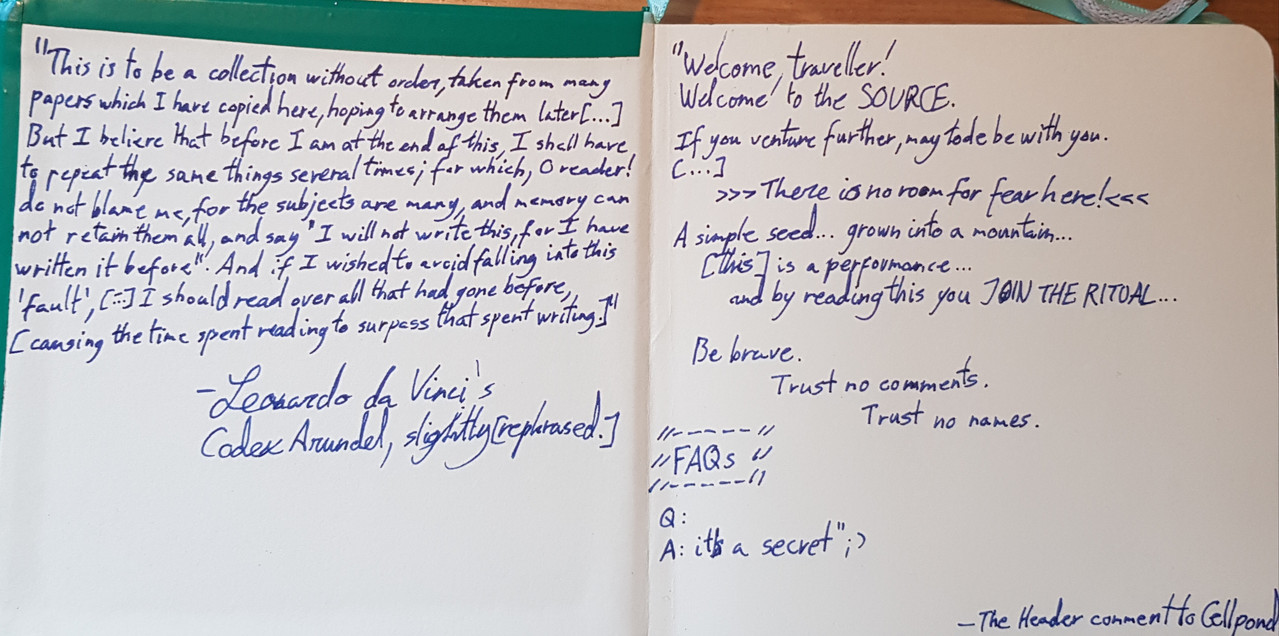 "This is to be a collection without order, taken from many
papers which I have copied here, hoping to arrange them later[...]
But I believe that before I am at the end of this, I shall have
to repeat the same things several times; for which, O reader!
do not blame me, for the subjects are many, and memory can
not retain them all, and say "I will not write this, for I have
written it before". And if I wished to avoid falling into this
'fault', [...] I should read over all that had gone before,
[causing the time spent reading to surpass that spent writing.]"
- Leonardo da Vinci's
Codex Arundel, slightly [rephrased.]
"Welcome, traveller!
Welcome to the SOURCE.
If you venture further, may tode be with you.
[...]
>>> There is no room for fear here! <<<
A simple seed... grown into a mountain...
[this] is a performance...
and by reading this you JOIN THE RITUAL...
Be brave.
Trust no comments.
Trust no names.
//-----//
// FAQs //
//-----//
Q:
A: it's a secret" ;)
- The Header comment to Cellpond